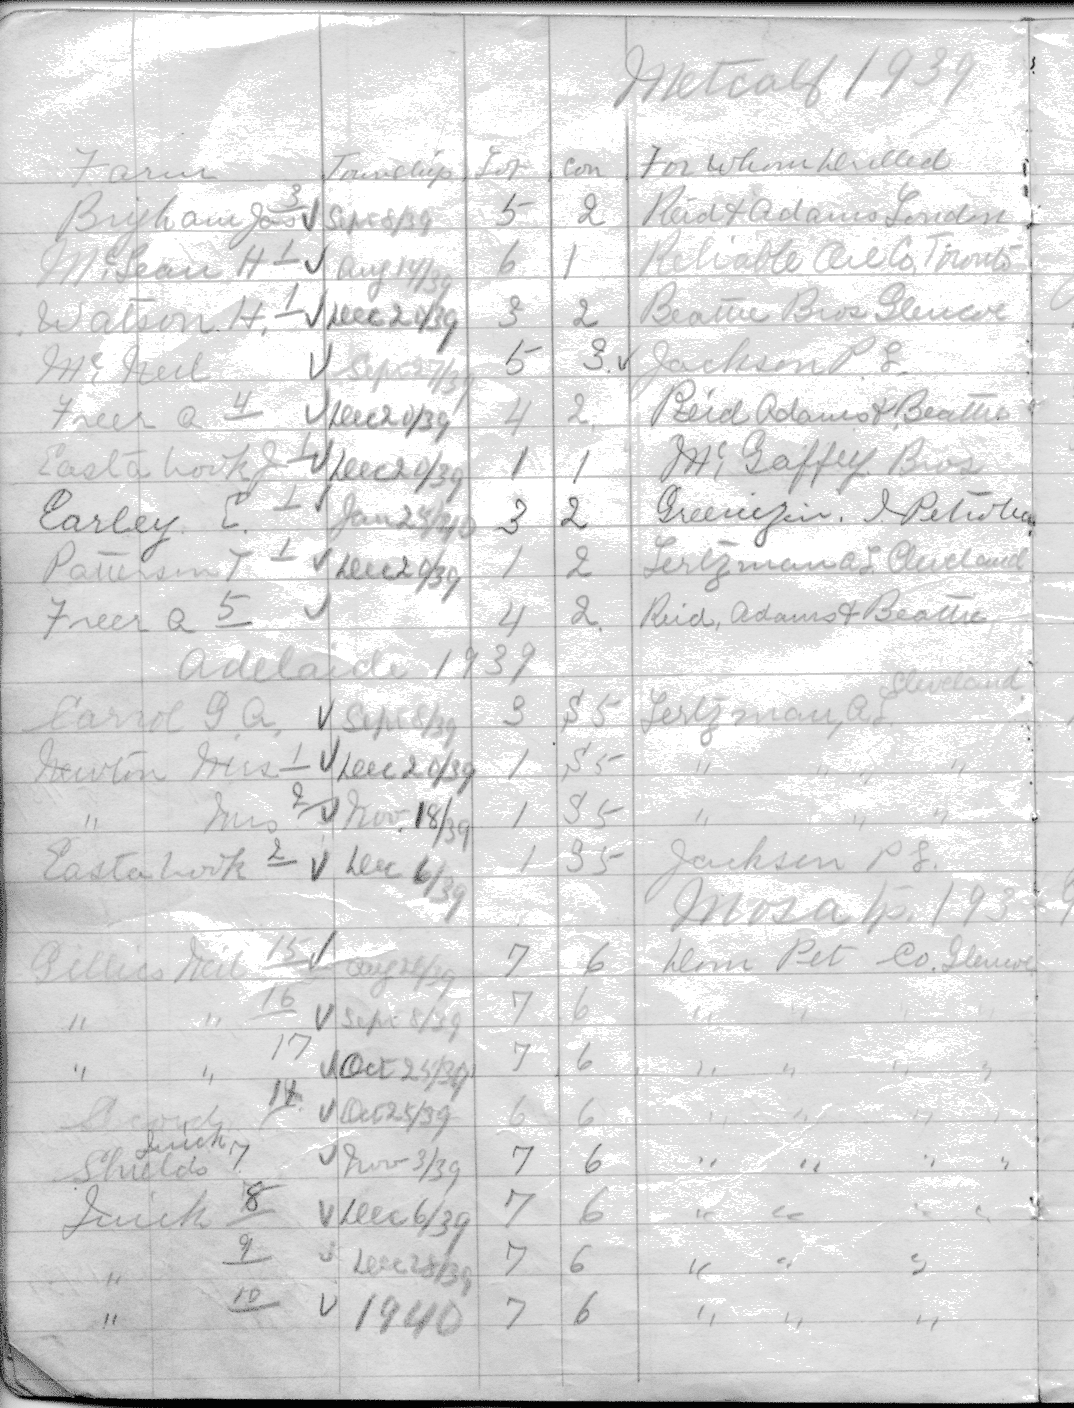 Metcalf 1939
Farm Township Lot Con For whom Drilled
Brigham Jas 3 ✓ Sept 8/39 5 2 Reid & Adams London
McLean H 1 ✓ Aug 14/39 6 1 Reliable Oil Co, Toronto
Watson H. 1 ✓ Dec 20/39 3 2 Beattie Bros Glencoe
Mc Neil ✓ Sept 27/39 5 3 ✓ Jackson P. S.
Freer A 4 ✓ Dec 20/39 4 2 Reid Adams & Beattie
Eastabrook J 1 ✓ Dec 20/39 1 1 Mc Gaffey Bros
Earley E. 1 ✓ Jan 25/40 3 2
Patterson T 1 ✓ Dec 20/39 1 2 Lertzman A S Cleveland
Freer A 5 ✓ 4 2 Reid, Adams & Beattie
Adelaide 1939
Cleveland
G. A. ✓ Sept 8/39 3 S 5 Lertzman, A S
Newton Mrs 1 ✓ Dec 20/39 1 S 5 " " " "
" Mrs 2 ✓ Nov. 18/39 1 S 5 " " "
Eastabrook 2 ✓ Dec 6/39 1 S 5 Jackson P S.
Mosa Tp. 1939
Gillies Neil 15 ✓ Aug 28/39 7 6 Dom Pet Co. Glencoe
" " 16 ✓ Sept 8/39 7 6 " " " "
" " 17 ✓ Oct 25/39 7 6 " " " "
18 ✓ Oct 25/39 6 6 " " " "
Quick
Shields 7 ✓ Nov 3/39 7 6 " " " "
Quick 8 ✓ Dec 6/39 7 6 " " " "
" 9 ✓ Dec 28/39 7 6 " " "
" 10 ✓ 1940 7 6 " " "